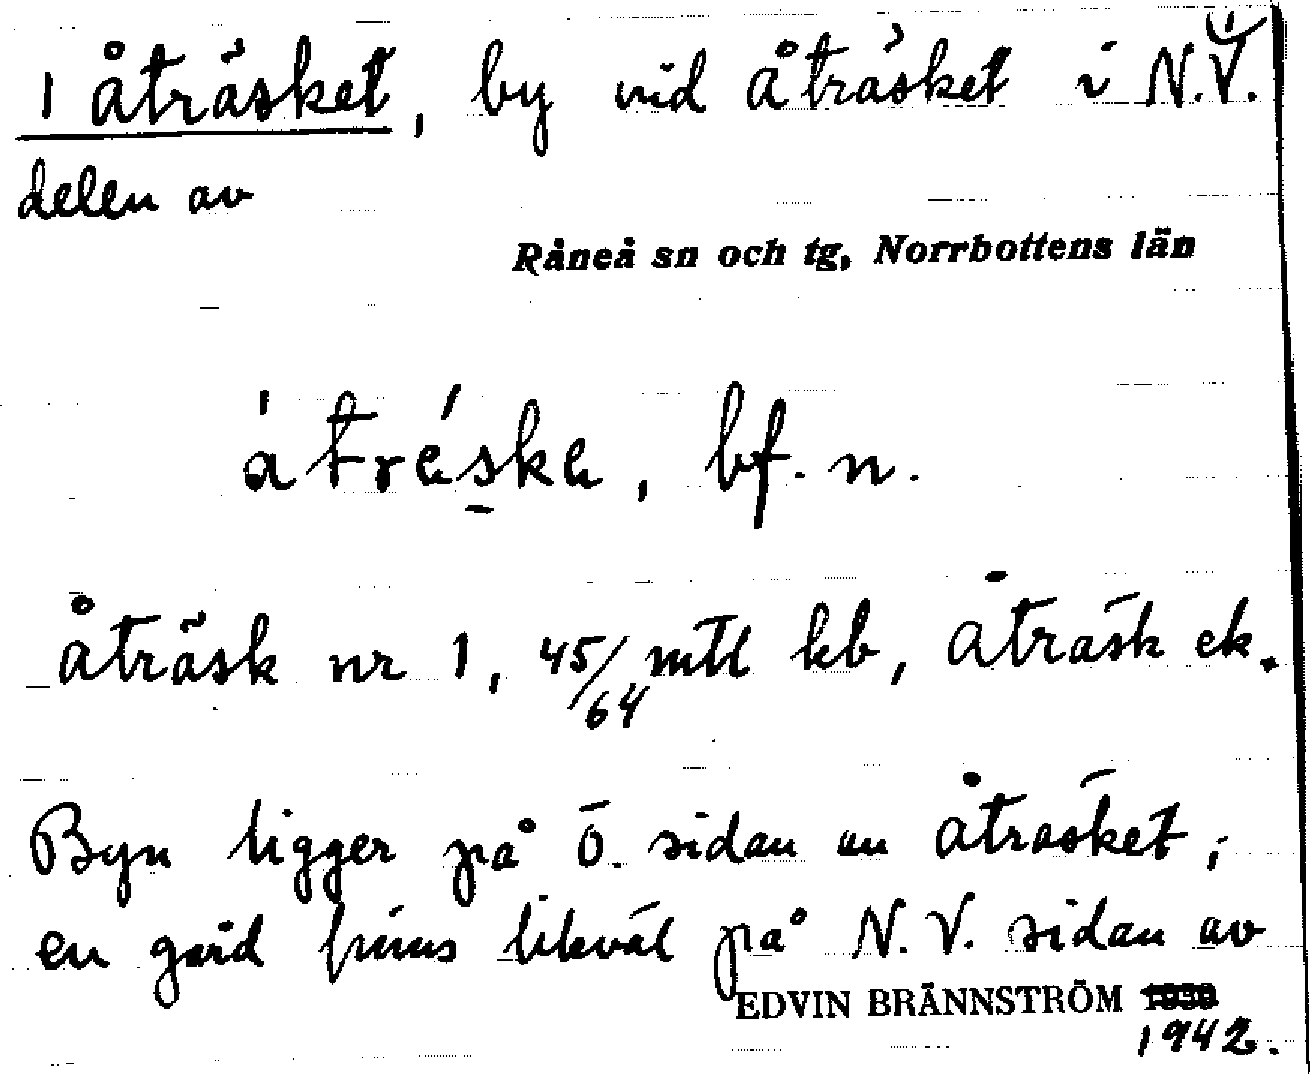 1 Åträsket, by vid Åträsket i N.V.
delen av
Råneå sn och tg, Norrbottens län
åträske, bf. n.
Åträsk nr 1, 45/64 mtl kb, Åträsk ek.
Byn ligger på Ö. sidan av Åträsket;
en gård finns likväl på N.V. sidan av
EDVIN BRÄNNSTRÖM 1939
1942.